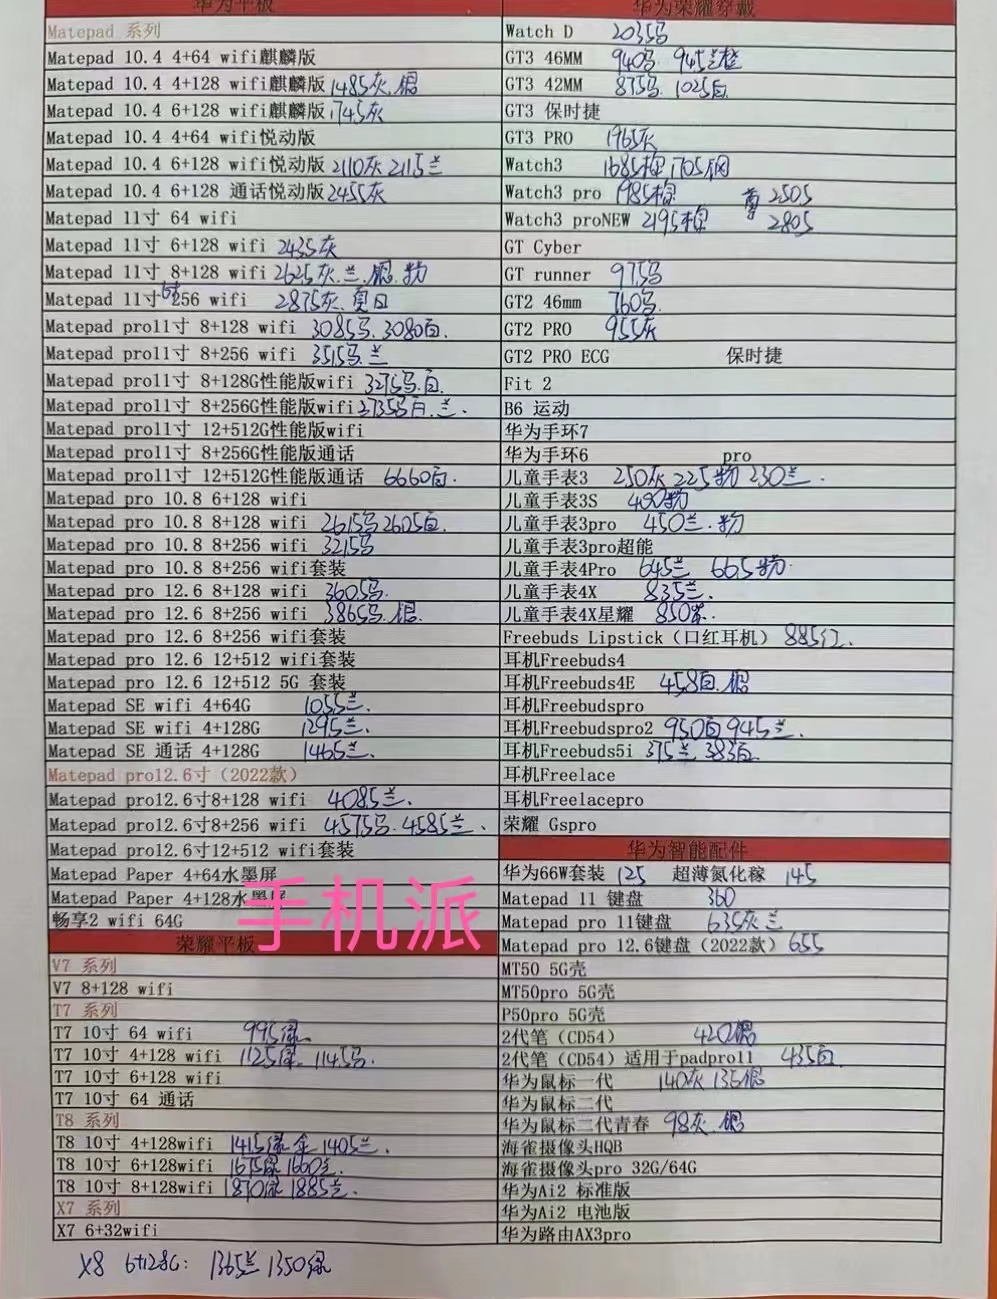 华为平板
Matepad 系列
Matepad 10.4 4+64 wifi麒麟版
Matepad 10.4 4+128 wifi麒麟版 1485灰.银
Matepad 10.4 6+128 wifi麒麟版 1745灰
Matepad 10.4 4+64 wifi悦动版
Matepad 10.4 6+128 wifi悦动版 2110灰 2115兰
Matepad 10.4 6+128 通话悦动版 2455灰
Matepad 11寸 64 wifi
Matepad 11寸 6+128 wifi 2435灰
Matepad 11寸 8+128 wifi 2625灰.兰.银.
Matepad 11寸 256 wifi 2875灰.
Matepad pro11寸 8+128 wifi 3085马.3080白.
Matepad pro11寸 8+256 wifi 3515马.兰
Matepad pro11寸 8+128G性能版wifi 3275马.白.
Matepad pro11寸 8+256G性能版wifi 3735马白.兰.
Matepad pro11寸 12+512G性能版wifi
Matepad pro11寸 8+256G性能版通话
Matepad pro11寸 12+512G性能版通话 6660白.
Matepad pro 10.8 6+128 wifi
Matepad pro 10.8 8+128 wifi 2615马 2605白.
Matepad pro 10.8 8+256 wifi 3215马
Matepad pro 10.8 8+256 wifi套装
Matepad pro 12.6 8+128 wifi 3605马.
Matepad pro 12.6 8+256 wifi 3865马.银.
Matepad pro 12.6 8+256 wifi套装
Matepad pro 12.6 12+512 wifi套装
Matepad pro 12.6 12+512 5G 套装
Matepad SE wifi 4+64G 1055兰.
Matepad SE wifi 4+128G 1295兰.
Matepad SE 通话 4+128G 1465兰.
Matepad pro12.6寸（2022款）
Matepad pro12.6寸8+128 wifi 4085兰.
Matepad pro12.6寸8+256 wifi 4575马.4585兰.
Matepad pro12.6寸12+512 wifi套装
Matepad Paper 4+64水墨屏
Matepad Paper 4+128水墨屏
畅享2 wifi 64G
手机派
荣耀平板
V7 系列
V7 8+128 wifi
T7 系列
T7 10寸 64 wifi 995绿
T7 10寸 4+128 wifi 1125绿 1145马.
T7 10寸 6+128 wifi
T7 10寸 64 通话
T8 系列
T8 10寸 4+128wifi 1415绿金 1405兰.
T8 10寸 6+128wifi 1675绿 1660兰.
T8 10寸 8+128wifi 1870绿 1885兰.
X7 系列
X7 6+32wifi
X8 6+128G: 1365兰 1350绿
华为荣耀穿戴
Watch D 2035马
GT3 46MM 940马 945兰橙
GT3 42MM 875马 1025白
GT3 保时捷
GT3 PRO 1965灰
Watch3 1685棕 1705钢
Watch3 pro 1985棕 尊 2505
Watch3 proNEW 2195棕 2805
GT Cyber
GT runner 975马
GT2 46mm 760马
GT2 PRO 955灰
GT2 PRO ECG 保时捷
Fit 2
B6 运动
华为手环7
华为手环6 pro
儿童手表3 250灰 225粉 230兰.
儿童手表3S 490粉
儿童手表3pro 450兰.粉
儿童手表3pro超能
儿童手表4Pro 645兰 665粉
儿童手表4X 835兰.
儿童手表4X星耀 850
Freebuds Lipstick（口红耳机） 885红.
耳机Freebuds4
耳机Freebuds4E 458白.银
耳机Freebudspro
耳机Freebudspro2 950白 945兰.
耳机Freebuds5i 375兰.383白.
耳机Freelace
耳机Freelacepro
荣耀 Gspro
华为智能配件
华为66W套装 125 超薄氮化稼 145
Matepad 11 键盘 360
Matepad pro 11键盘 635灰兰
Matepad pro 12.6键盘（2022款）655
MT50 5G壳
MT50pro 5G壳
P50pro 5G壳
2代笔（CD54） 420银
2代笔（CD54）适用于padpro11 435白
华为鼠标一代 140灰 135银
华为鼠标二代
华为鼠标二代青春 98灰.银
海雀摄像头HQB
海雀摄像头pro 32G/64G
华为Ai2 标准版
华为Ai2 电池版
华为路由AX3pro